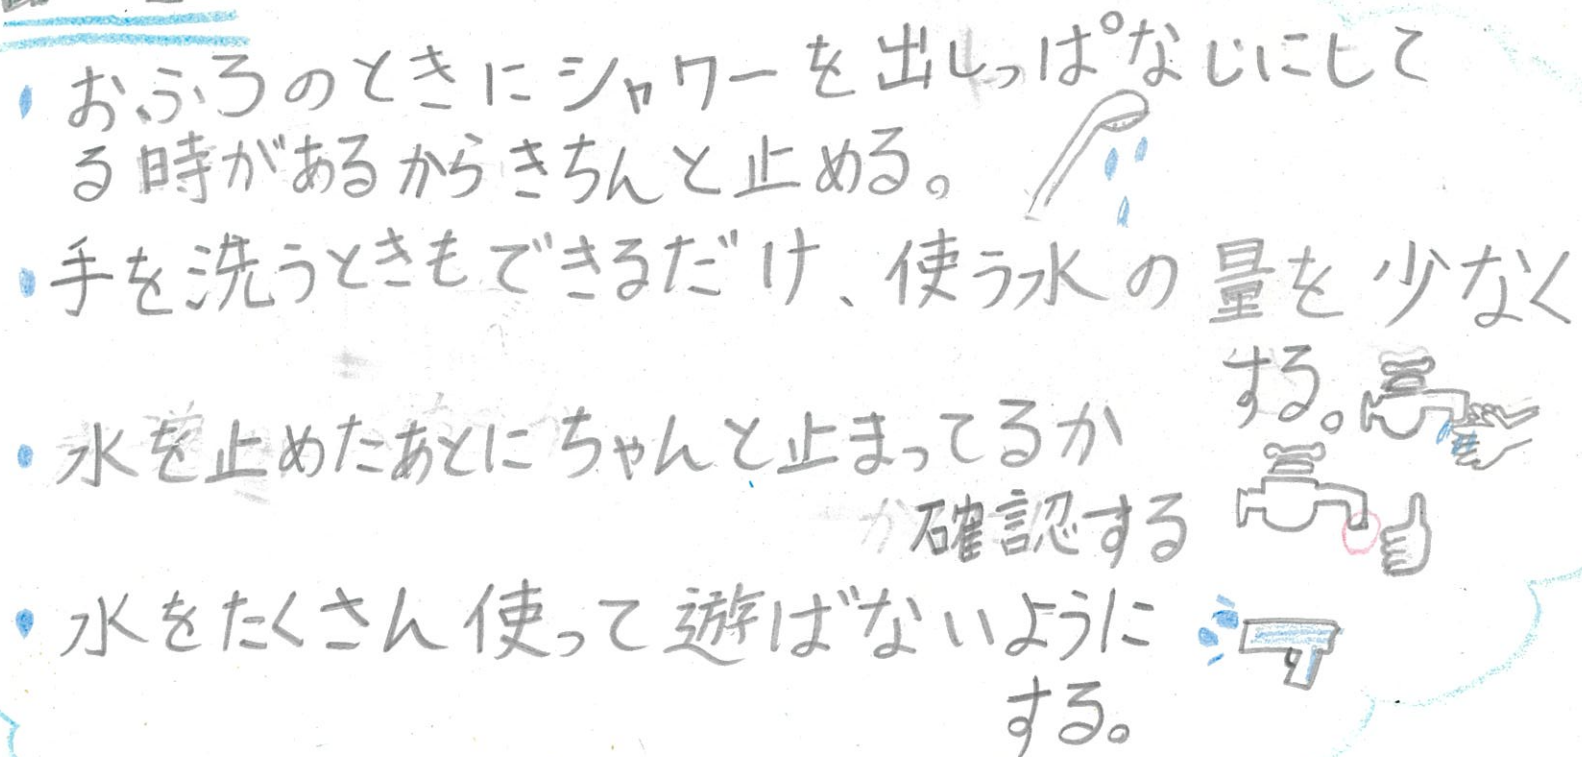 ・おふろのときにシャワーを出しっぱなじにして
る時があるからきちんと止める。
・手を洗うときもできるだけ、使う水の量を少なく
する。
・水を止めたあとにちゃんと止まってるか
確認する
・水をたくさん使って遊ばないように
する。